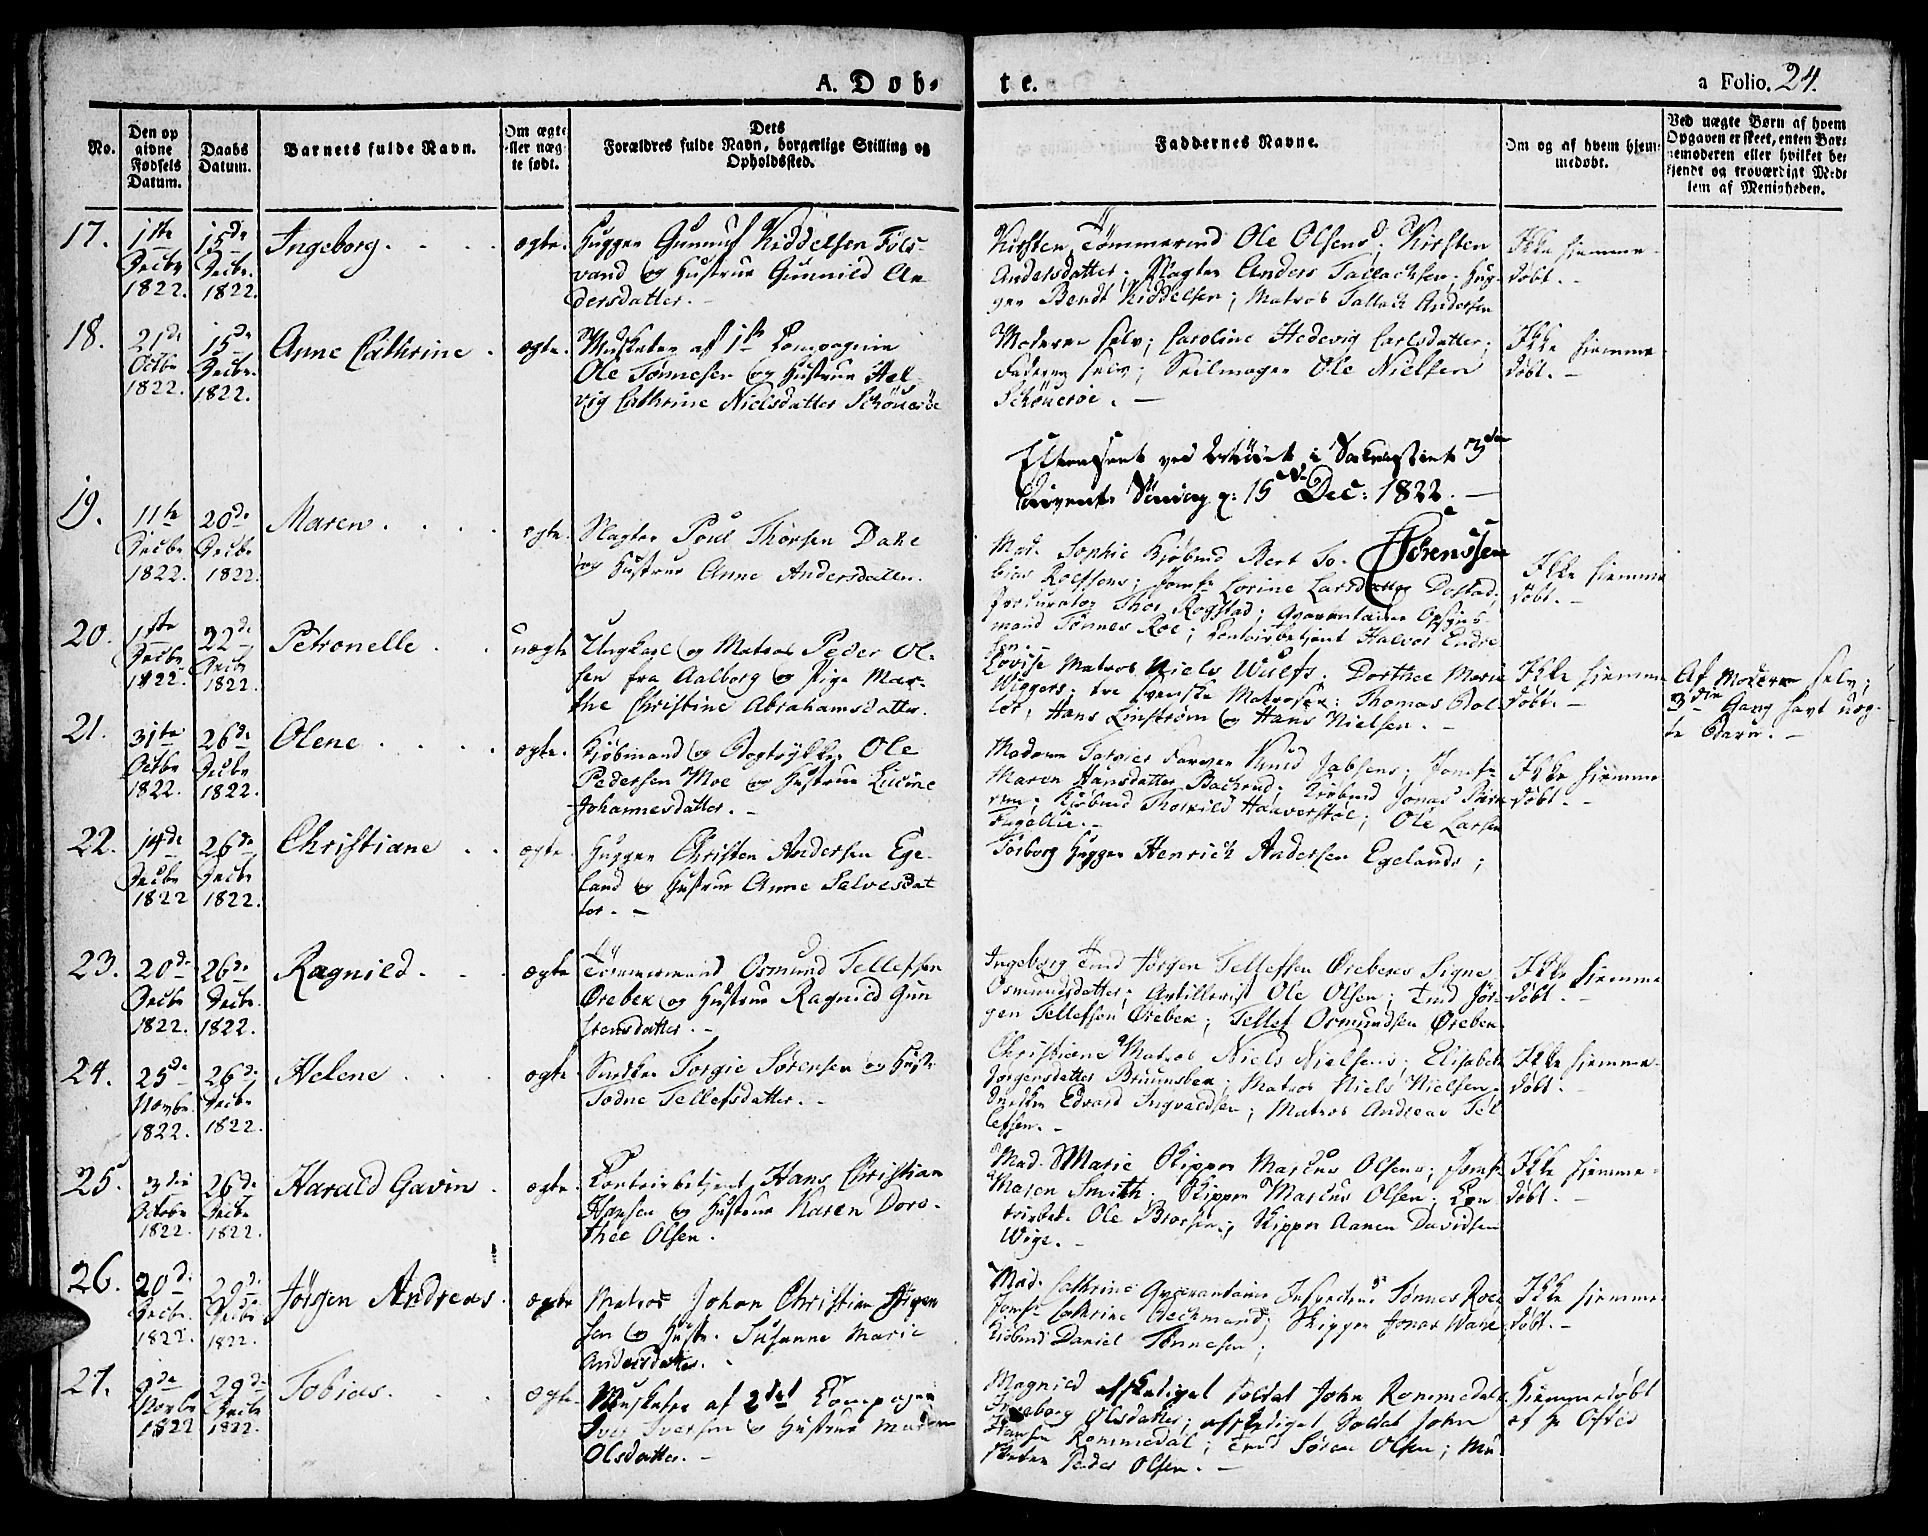 A. Døb-
te.
a Folio. 24.
No.
Den op
givne
Fødsels
Datum.
Daabs
Datum.
Barnets fulde Navn.
Om ægte
eller uæg-
te født.
Dets
Forældres fulde Navn, borgerlige Stilling og
Opholdssted.
Faddernes Navne.
Om og af hvem hjem-
medøbt.
Ved uægte Børn af hvem
Opgaven er skeet, enten Bar-
nemoderen eller hvilket be-
kjendt og troværdigt Med-
lem af Menigheden.
17.
1ste
Decbr
1822.
15de
Decbr.
1822.
Ingeborg.
ægte.
Hugger Gunnuf Kiddelsen Fols-
vand og Hustrue Gunnild An
dersdatter.
Kirsten Tömmermd Ole Olsens; Kirsten
Andersdatter; Slagter Anders Tallachsen; Hug-
ger Bendt Kiddelsen; Matros Tallach Andersen
Ikke hjemme-
døbt.
18.
21de
Octbr
1822.
15de
Decbr.
1822.
Anne Cathrine
ægte.
Musketer af 1ste Compagnie
Ole Tønnesen og Hustrue Hel-
vig Cathrine Nielsdatter Schöuerøe
Moderen selv; Caroline Hedevig Carlsdatter;
Faderen selv; Seilmager Ole Nielsen
Schöuerøe.
Ikke hjemme-
døbt.
Efterseet ved i Sakrastiet 3die
Advents Søndag d: 15de Dec: 1822.
Sørenssen
19.
11te
Decbr
1822.
20de
Decbr
1822.
Maren
ægte.
Slagter Poul Thorsen Dahl
og Hustrue Anne Andersdatter.
Mad. Sophie Kjøbmd Bert To-
bias Roessens; Jomfr Lorine Larsdatter Dostad;
Procurator Thor Rogstad; Qvarentaine Opsyns-
mand Tønnes Roe; Contoirbetjent Halvor Endre
sen.
Ikke hjemme
døbt.
20.
1ste
Decbr
1822.
22de
Decbr
1822.
Petronelle
uægte
Ungkarl og Matros Peder Ol-
sen fra Aalborg og Pige Mar-
the Christine Abrahamsdatter.
Lovise Matros Niels Wulfs; Dorthee Marie
Wiggers; tre svenske Matroser: Thomas
Hans Linstrøm og Hans Nielsen.
Ikke hjemme
døbt.
Af Moderen selv;
3die Gang havt uæg-
te Barn.
21.
31te
Octbr
1822.
26de
Decbr
1822.
Olene
ægte.
Kjøbmand og Bogtrykker Ole
Pedersen Moe og Hustrue Lucine
Johannesdatter.
Madame Knud Jabsens; Jomfr
Maren Hansdatter; Kjøbmd Jonas
Kjøbmd Thorkild Haaverstøl; Ole Larsen
Ikke hjemme
døbt.
22.
14de
Decbr
1822
26de
Decbr
1822.
Christiane
ægte.
Hugger Christen Andersen Ege-
land og Hustrue Anne Salvesdat
ter.
Torborg Hugger Henrich Andersen Egelands;
23.
20de
Decbr
1822.
26de
Decbr.
1822.
Ragnild.
ægte
Tømmermand Osmund Tellefsen
Ørebek og Hustrue Ragnild Gun
stensdatter.
Ingeborg Tmd Jørgen Tellefsen Ørebeks Signe
Osmundsdatter; Artillerist Ole Olsen; Tmd Jör-
gen Tellefsen Ørebek; Tellef Osmundsen Ørebek
Ikke hjemme
døbt.
24.
25de
Novbr.
1822.
26de
Decbr
1822.
Helene
ægte
Snedker Torgie Sørensen og Hustr
Todne Tellefsdatter.
Christiane Matros Niels Nielsens; Elisabeth
Jørgensdatter Bruunsbek; Matros Niels Nielsen;
Snedker Edvard Ingvaldsen; Matros Andreas Tel
lefsen.
Ikke hjemme-
døbt.
25.
3die
Octobr
1822.
26de
Decbr
1822.
Harald Gavin
ægte.
Contoirbetjent Hans Christian
Hansen og Hustrue Karen Doro-
thee Olsen.
Mad. Marie Skipper Marcus Olsens; Jomfr
Maren Smith; Skipper Marcus Olsen; Con
toirbet. Ole Brorsen; Skipper Aanen Davidsen
Wige.
Ikke hjemme-
døbt.
26.
20de
Decbr.
1822.
29de
Decbr
1822.
Jørgen Andreas.
ægte
Matros Johan Christian Jörgen
sen og Hustr. Susanne Marie
Andersdatter.
Mad. Cathrine Qvarantaine Inspecteur Tønnes Roes
Jomfr Cathrine Beckmand; Skipper Jonas Ware
Kjøbmd Daniel Tønnesen;
Ikke hjemme-
døbt.
27.
9de
Novbr
1822
29de
Decbr
1822.
Tobias.
ægte.
Musketer af 2det Compagnie
Iver Iversen og Hustrue Maren
Olsdatter.
Magnild afskediget Soldat John Rommedals
Ingeborg Olsdatter; afskediget Soldat John
Hansen Rommedal; Tmd Søren Olsen; Mu
sketer Peder Olsen.
Hjemmedøbt
af Hr Ofted